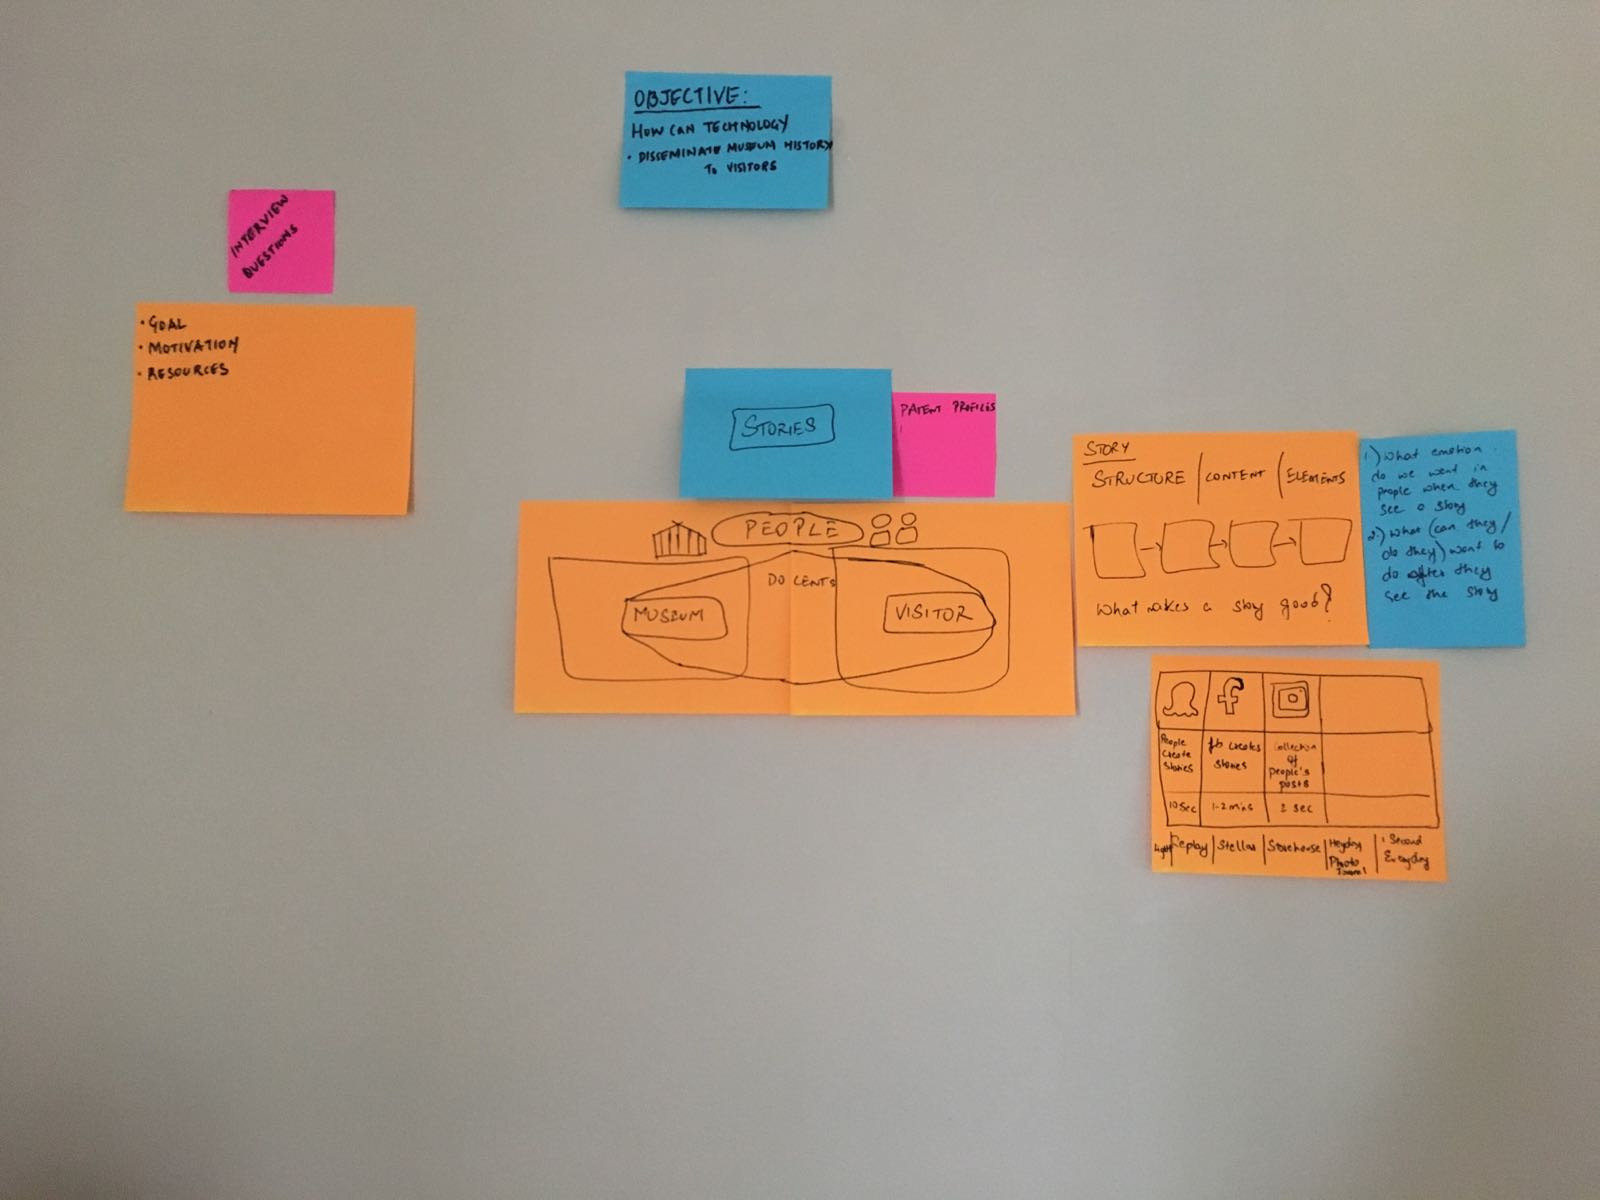 OBJECTIVE:
HOW CAN TECHNOLOGY
• DISSEMINATE MUSEUM HISTORY
TO VISITORS
INTERVIEW
QUESTIONS
• GOAL
• MOTIVATION
• RESOURCES
STORIES
PATENT PROFILES
PEOPLE
DOCENTS
MUSEUM
VISITOR
STORY
STRUCTURE | CONTENT | ELEMENTS
What makes a story good?
1) What emotion
do we want in
people when they
see a story
2.) What (can they /
do they) want to
do after they
see the story
People
create
stories
fb creates
stories
Collection
of
people's
posts
10 sec
1-2 mins
Replay
Steller
Storehouse
Heyday
Photo
Journal
1 Second
Everyday